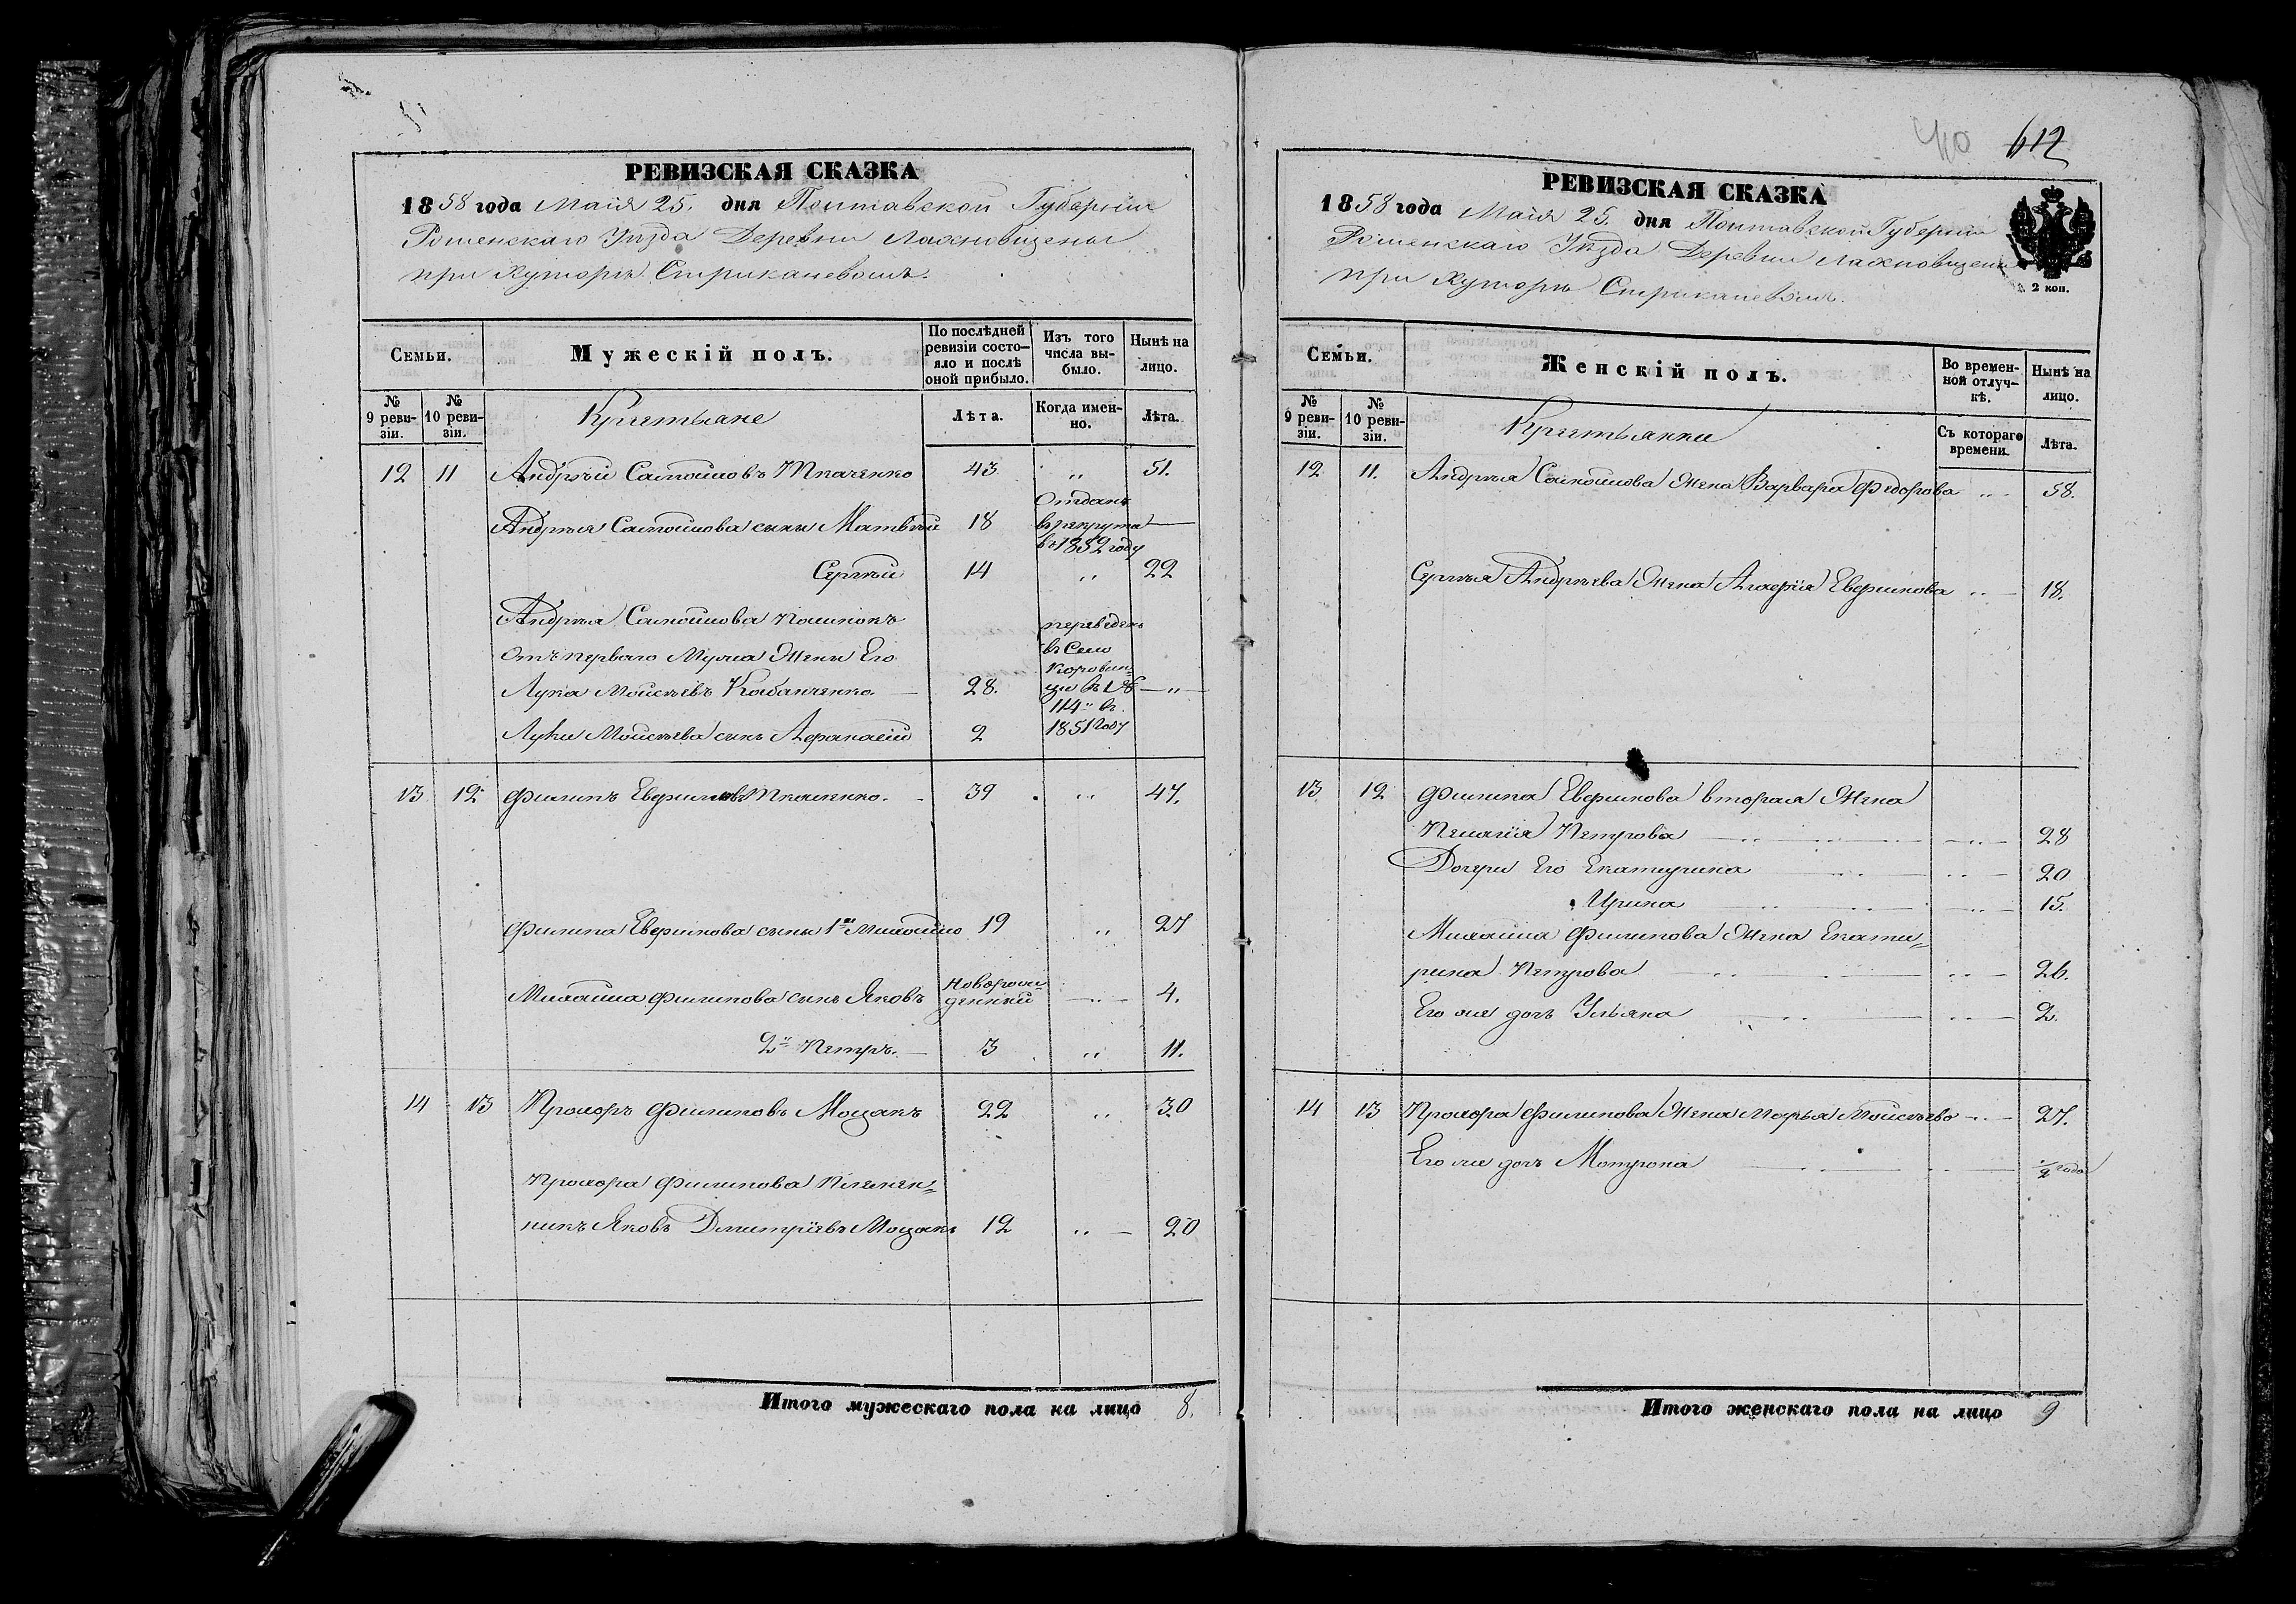 РЕВИЗСКАЯ СКАЗКА
1858 года Маія 25. дня Полтавской Губерніи
Роменскаго Уѣзда Деревни Лахновщены
при Хуторѣ Стрикачевомъ.
Семьи.
Мужескій полъ.
По послѣдней ревизіи состояло и послѣ оной прибыло.
Изъ того числа выбыло.
Нынѣ на лицо.
№ 9 ревизіи.
№ 10 ревизіи.
Крестьане
Лѣта.
Когда именно.
Лѣта.
12 11 Андрѣй Самойловъ Ткаченко 43 „ 51.
Андрѣя Самойлова сыны Матвѣй 18 Отданъ в рекрута в 1852 году
Сергѣй 14 „ 22
Андрѣя Самойлова пасинокъ
Отъ перваго Мужа Жены Его
Лука Мойсѣевъ Кабанченко. 28. переведенъ в Село Коровинци въ № 114 „ в. 1851 году — „ —
Луки Мойсѣева сынъ Афанасій 2
13 12 Филипъ Ефимовъ Ткаченко. 39 „ 47.
Филипа Ефимова сыны 1й Михайло 19 „ 27
Михайла Филипова сынъ Яковъ Новорожденный „ 4.
2й Петръ. 3 „ 11.
14 13 Прохоръ Филиповъ Мощакъ 22 „ 30
Прохора Филипова племен-
никъ Яковъ Дмитріевъ Мощакъ 12 „ 20
Итого мужескаго пола на лицо 8.
40 612
РЕВИЗСКАЯ СКАЗКА
1858 года Маія 25. дня Полтавской Губерніи
Роменскаго Уѣзда Деревни Лахновщены
при Хуторѣ Стрикачевомъ.
2 коп.
Семьи.
Женскій полъ.
Во временной отлучкѣ.
Нынѣ на лицо.
№ 9 ревизіи.
№ 10 ревизіи.
Крестьянки
Съ котораго времени.
Лѣта.
12 11. Андрѣя Самойлова Жена Варвара Федорова „ 58.
Сергѣя Андрѣева Жена Агафія Ефимова „ 18.
13 12 Филипа Ефимова вторая Жена
Пелагія Петрова „ 28
Дочери Его Екатерина „ 20
Ирина „ 15.
Михайла Филипова Жена Екате-
рина Петрова „ 26.
Его же дочь Ульяна „ 2.
14 13 Прохора Филипова Жена Марья Мойсѣева „ 27.
Его же дочь Мотрона „ 1/2 года
Итого женскаго пола на лицо 9